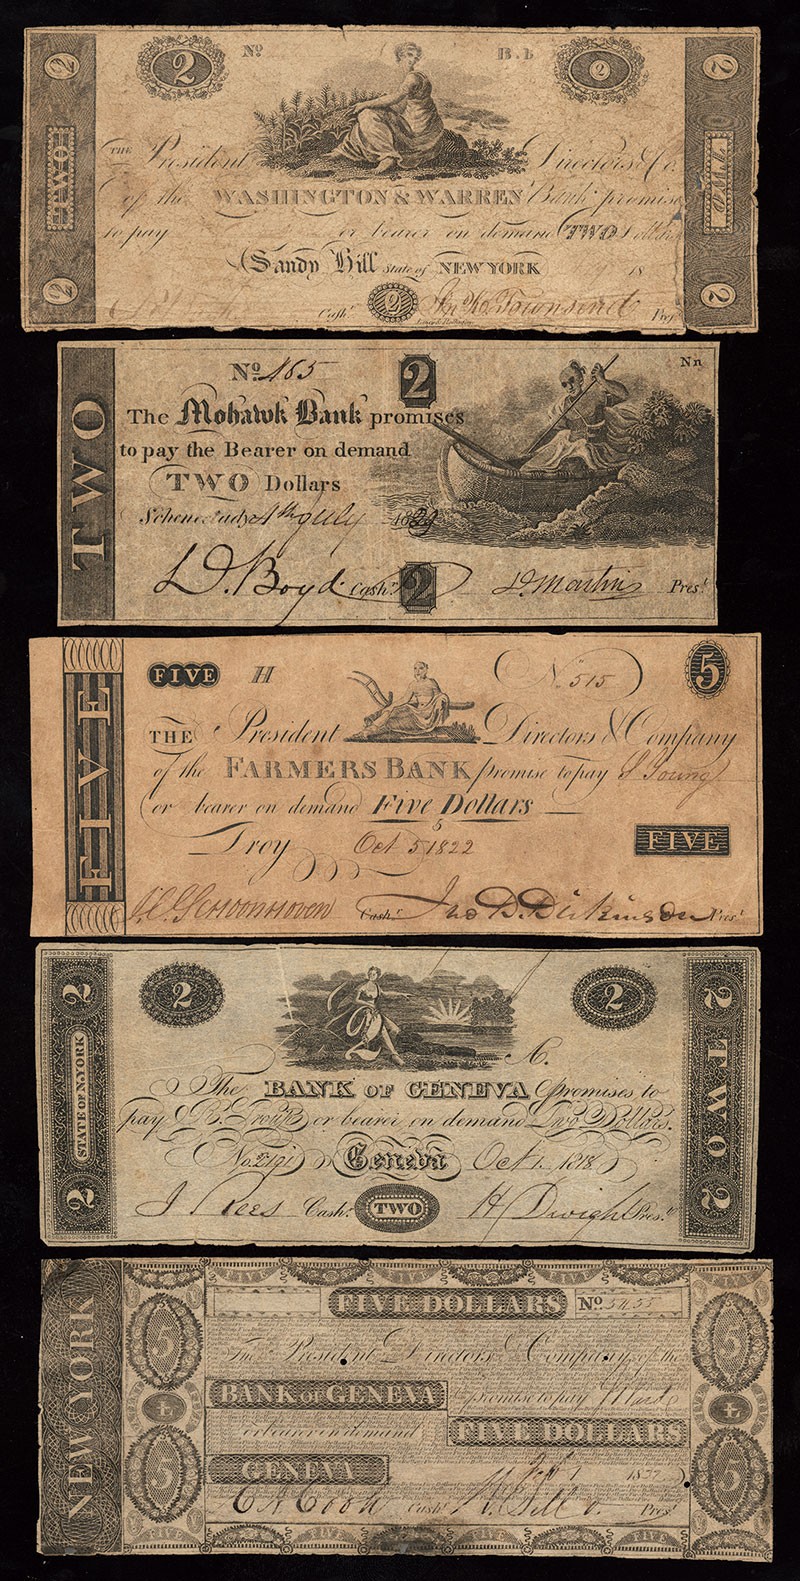 2 No B. b 2
TWO
THE President Directors & Co.
of the WASHINGTON & WARREN Bank promise
to pay or bearer on demand TWO Dollars
Sandy Hill State of NEW YORK 18
Cashr. 2 Jno. R. Townsend Prest.
2 2
TWO
No 465 2 Nn
The Mohawk Bank promises
to pay the Bearer on demand
TWO Dollars
Schenectady 4th July 1829
D. Boyd Cashr. 2 D. Martin Prest.
FIVE
FIVE H No. 515 5
THE President Directors & Company
of the FARMERS BANK promise to pay S Young
or bearer on demand Five Dollars
5
Troy Oct 5 1822 FIVE
Cashr. Prest.
2 STATE OF N.YORK 2
2 2
A.
The BANK OF GENEVA promises to
pay or bearer on demand Two Dollars.
No. 2191 Geneva Oct. 1. 1818
J Rees Cashr. TWO H Dwight Prest.
2 TWO 2
NEW YORK
FIVE FIVE FIVE
5 FIVE DOLLARS No 5455 5
The President Directors & Company of the
BANK OF GENEVA promise to pay
Ł Ł
or bearer on demand FIVE DOLLARS
5 GENEVA 5
Cashr. Prest.
FIVE FIVE FIVE